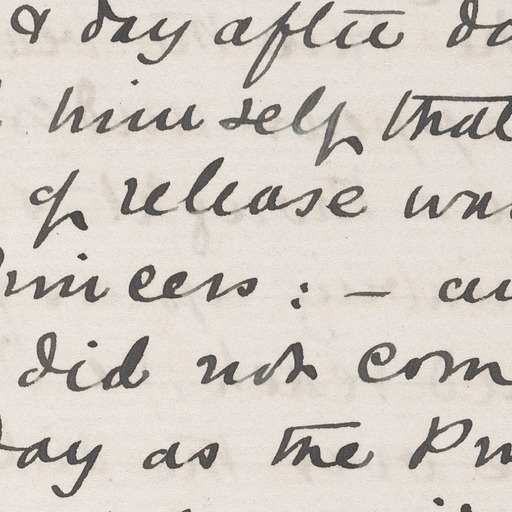 & day after da
himself that
of release was
Princess : — an
did not com
day as the Pr